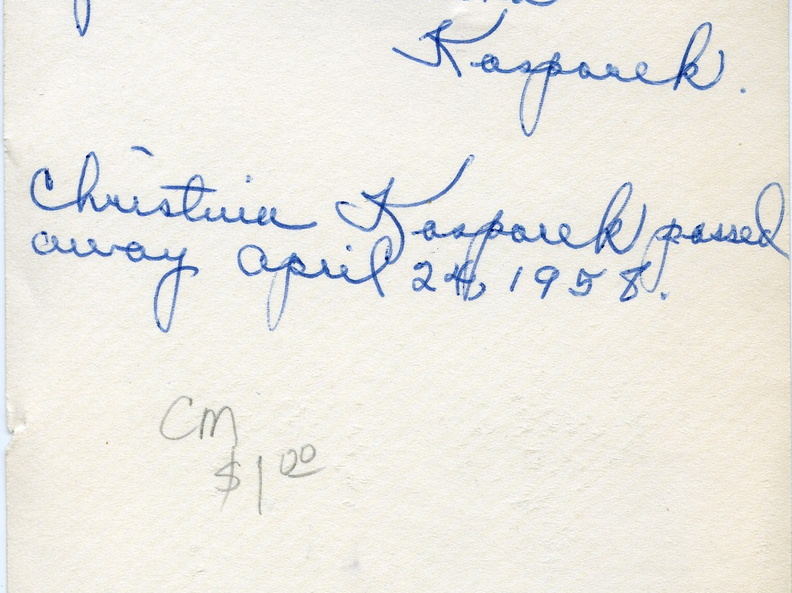 Kasparek.
Christina Kasparek passed
away April 24, 1958.
CM
$1.00